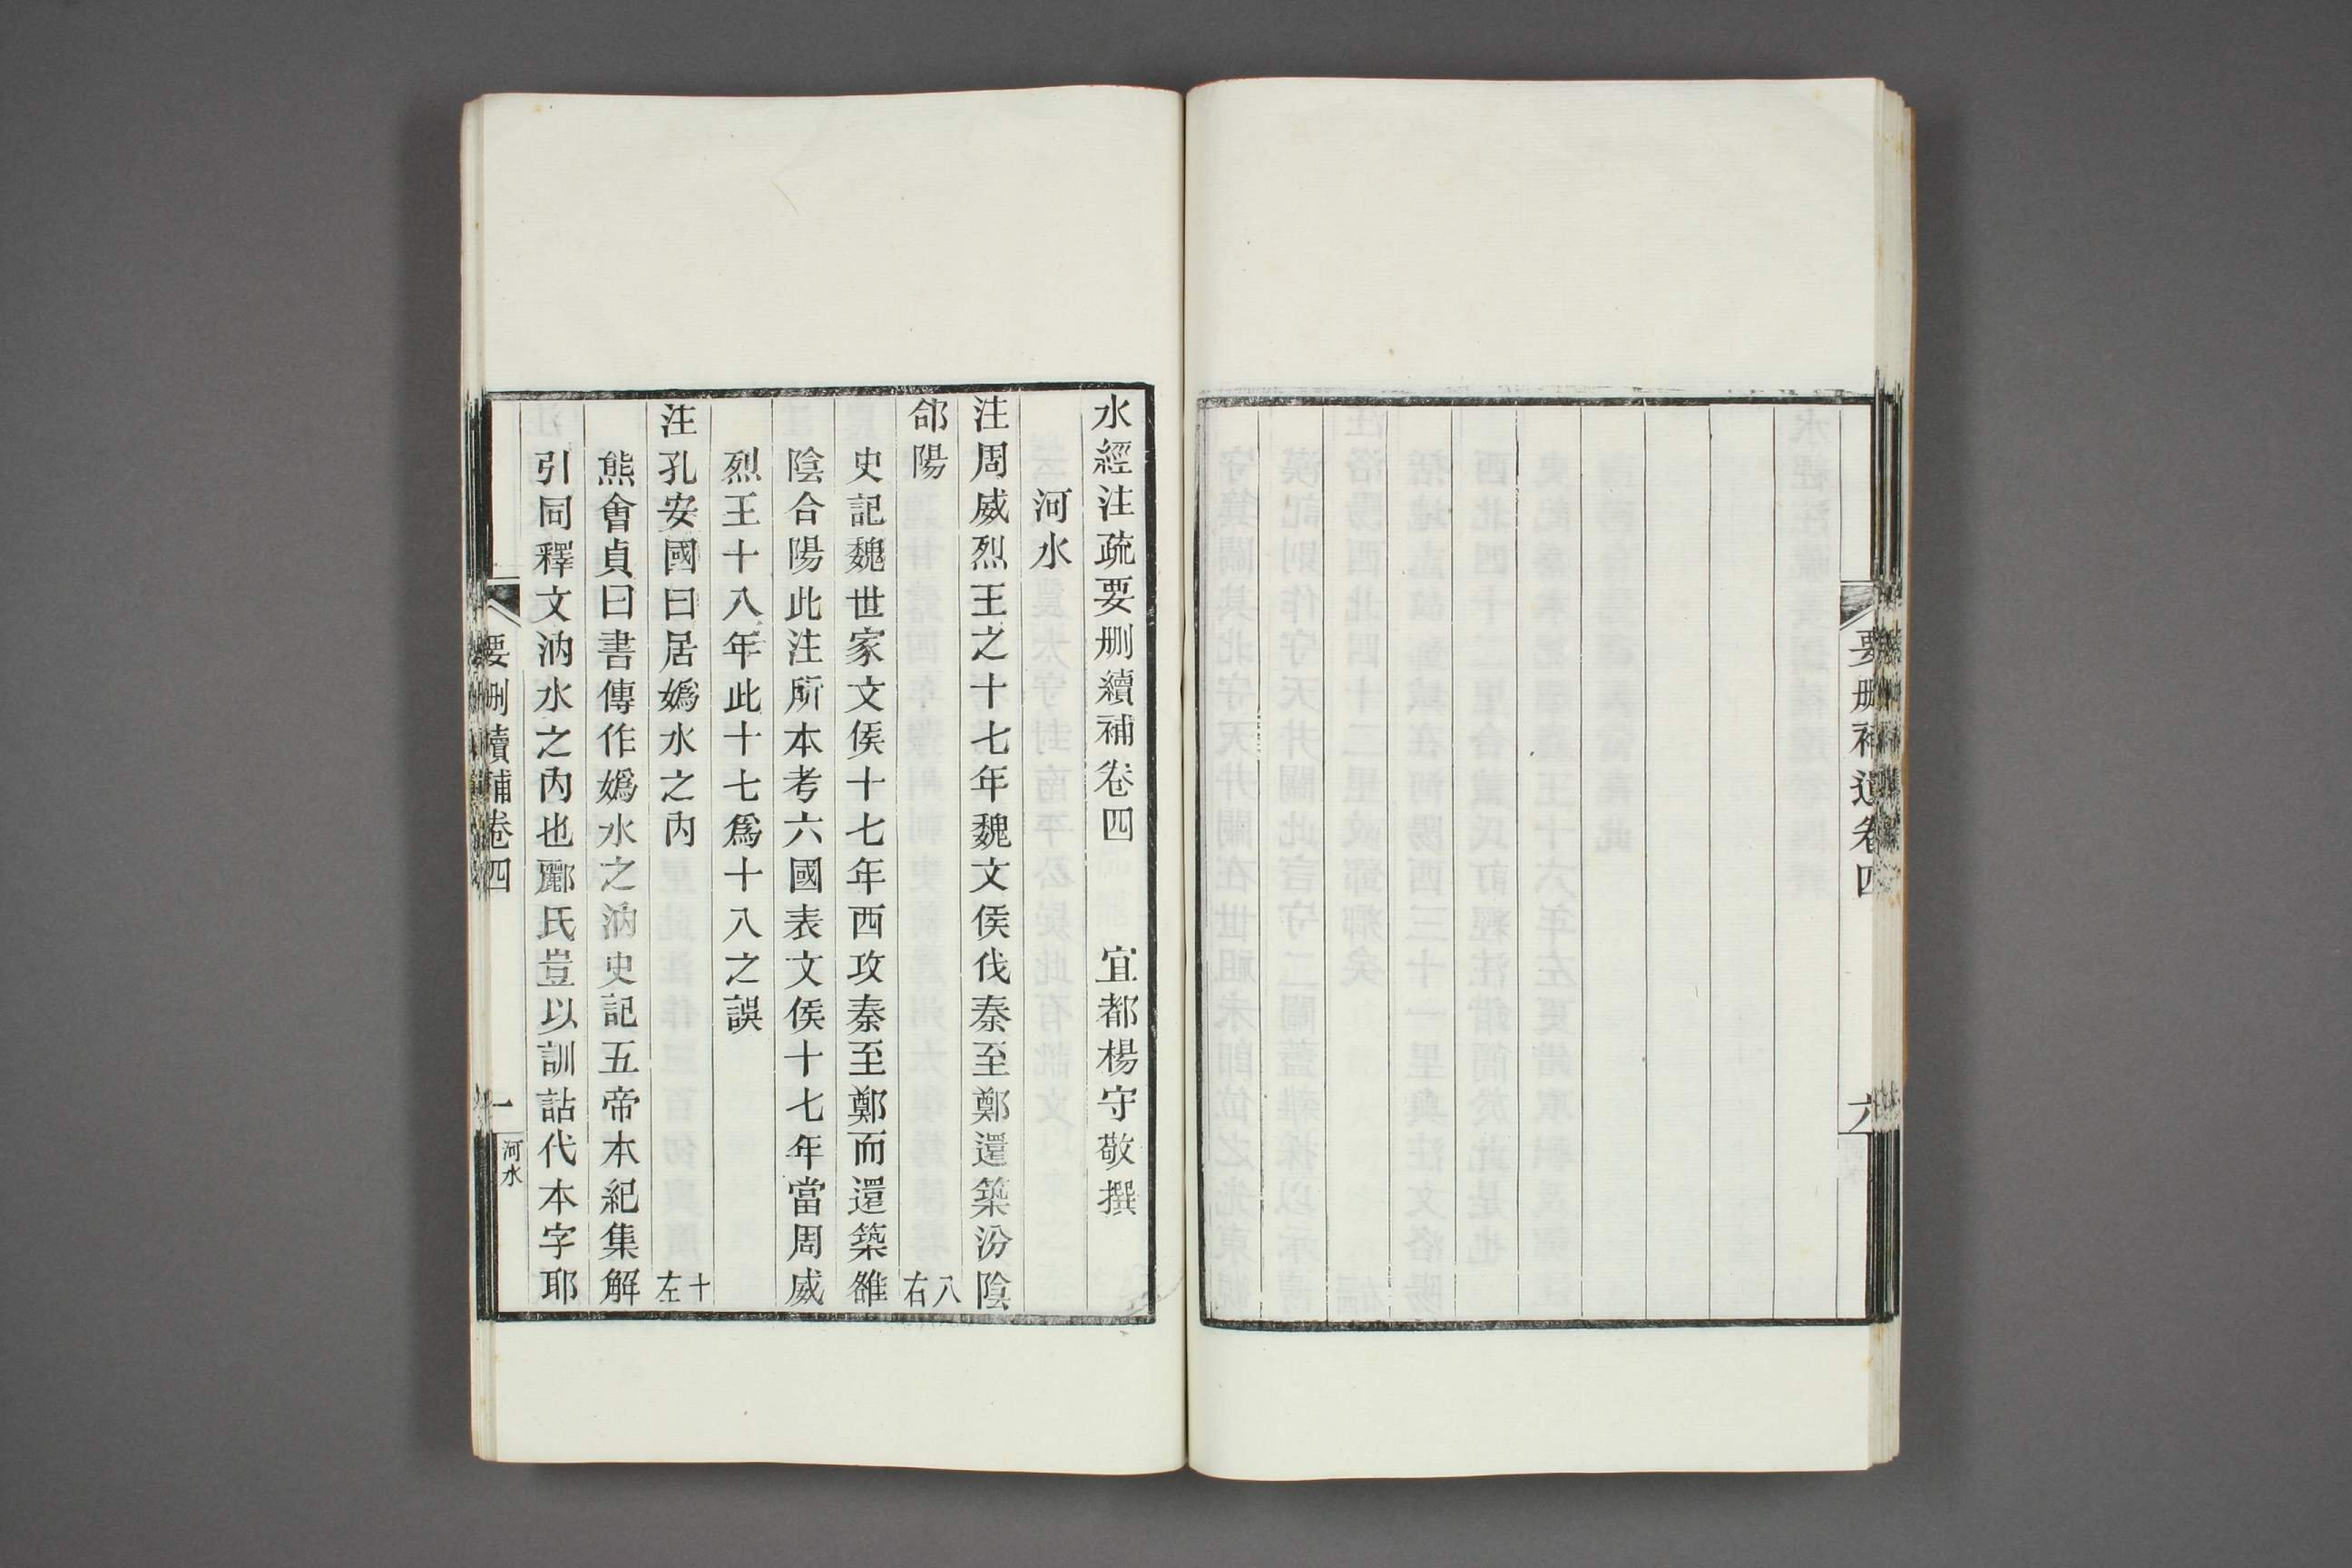 要刪補遺卷四
六
水經注疏要刪續補卷四　宜都楊守敬撰
河水
注周威烈王之十七年魏文侯伐秦至鄭還築汾陰
郃陽　八右
史記魏世家文侯十七年西攻秦至鄭而還築雒
陰合陽此注所本考六國表文侯十七年當周威
烈王十八年此十七爲十八之誤
注孔安國曰居嬀水之內　十左
熊會貞曰書傳作嬀水之汭史記五帝本紀集解
引同釋文汭水之內也酈氏豈以訓詁代本字耶
要刪續補卷四
一
河水